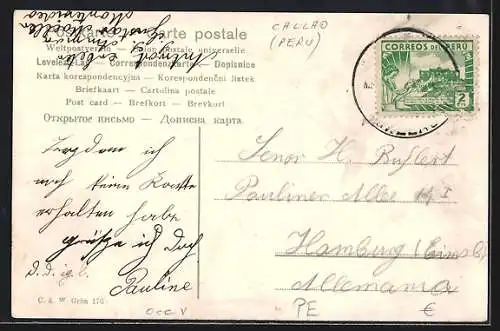 Postkarte — Carte postale
Weltpostverein — Union postale universelle
Levelező-Lap — Correspondenzkarte — Dopisnice
Karta korespondencyjna — Korespondenční lístek
Briefkaart — Cartolina postale
Post card — Brefkort — Brevkort
Открытое письмо — Дописна карта.
Antwort
erbeten
Gustav
Montevideo
CALLAO
(PERU)
CORREOS DEL PERU
2
Trotzdem ich
noch keine Karte
erhalten habe
grüße ich Dich
D. d. ig. b.
Pauline
Senor H. Ruflert
Pauliner Allee
Hamburg (Eimsb.)
Allemania
C. & W. Grän 176
Occ V
PE
€